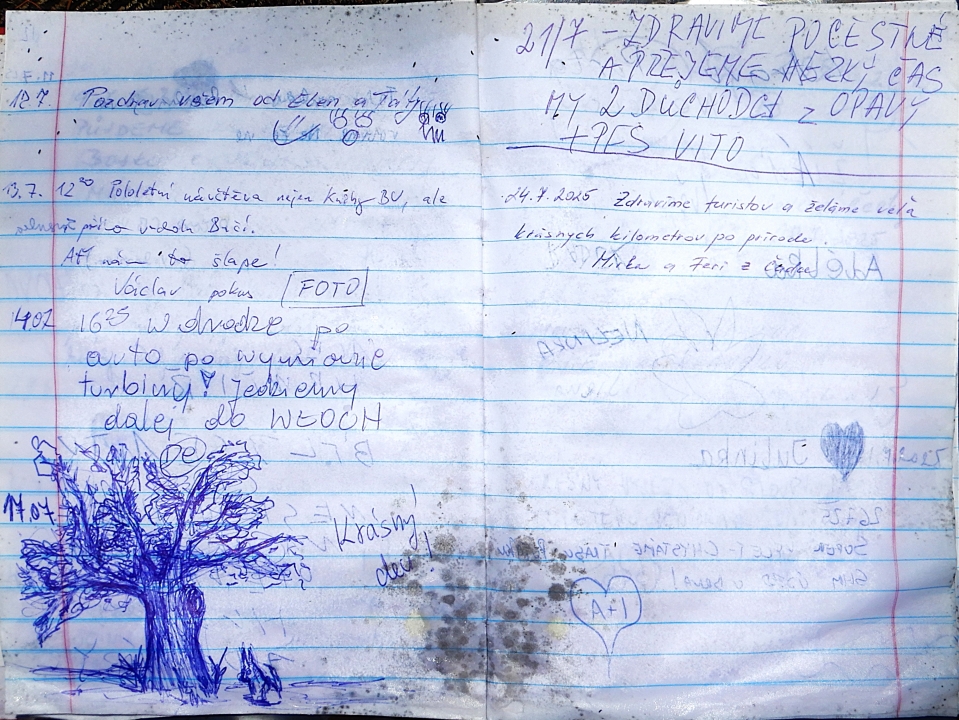 12.7. Pozdrav všem od Elen a Táty
13.7. 12⁰⁰ Pololetní návštěva nejen Knihy BU, ale
Ať nám to šlape!
Václav pokus FOTO
14.07 16²⁵ W drodze po
auto po wymianie
turbiny! Jedziemy
dalej do WŁOCH
17.07
Krásný
den!
21/7 - ZDRAVIME POCESTNÉ
A PŘEJEME HEZKÝ ČAS
MY 2 DŮCHODCI z OPAVY
+ PES VITO
24.7.2025 Zdravíme turistov a želáme veľa
krásnych kilometrov po prírode.
Mirka a Feri z
A+I